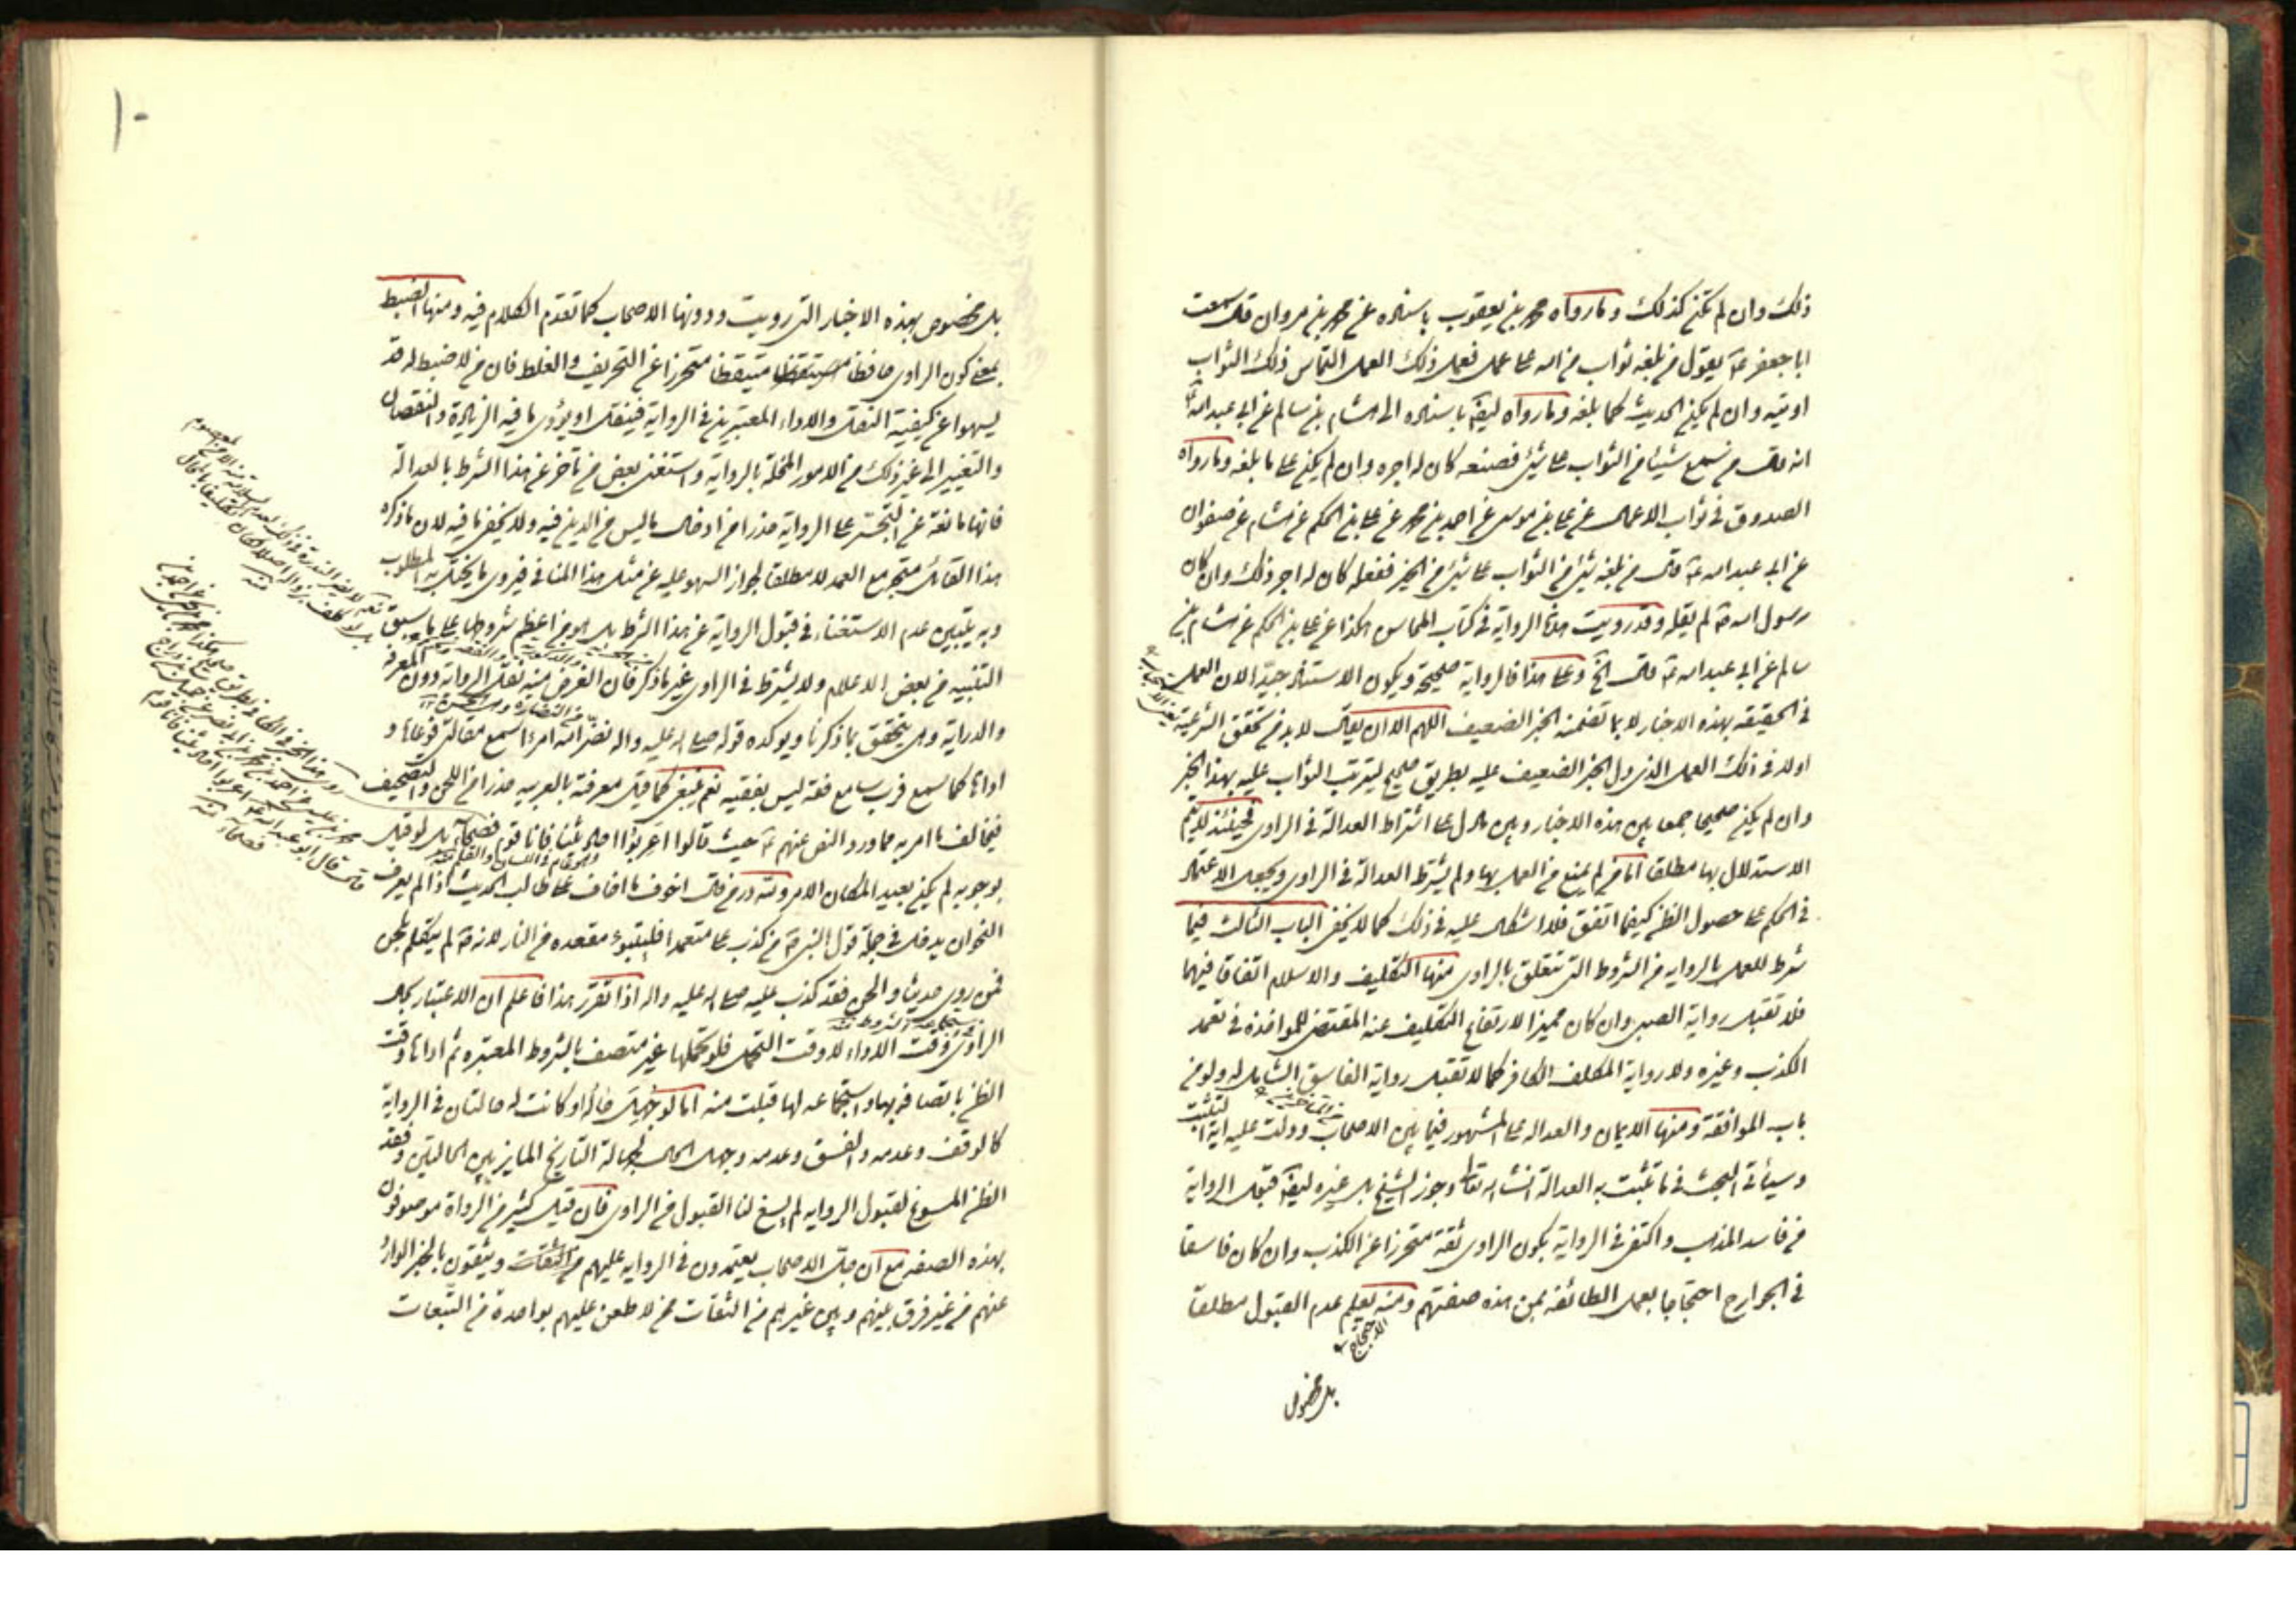 ذلك وان لم تكن كذلك وما رواه محمد بن يعقوب باسناده عن محمد بن مروان قال سمعت
ابا جعفر ع يقول من بلغه ثواب من الله على عمل فعمل ذلك العمل التماس ذلك الثواب
اوتيه وان لم يكن الحديث كما بلغه وما رواه ايضا باسناده الى هشام بن سالم عن ابي عبد الله ع
انه قال من سمع شيئا من الثواب على شئ فصنعه كان له اجره وان لم يكن على ما بلغه وما رواه
الصدوق في ثواب الاعمال عن علي بن موسى عن احمد بن محمد عن علي بن الحكم عن هشام عن صفوان
عن ابي عبد الله ع قال من بلغه شئ من الثواب على شئ من الخير ففعله كان له اجر ذلك وان كان
رسول الله ص لم يقله وقد رويت هذه الرواية في كتاب المحاسن هكذا عن علي بن الحكم عن هشام بن
سالم عن ابي عبد الله ع قال الخ وعلى هذا فالرواية صحيحة ويكون الاستناد جيدا لان العمل
في الحقيقه بهذه الاخبار لا بما تضمنه الخبر الضعيف اللهم الا ان يقال لا بد من تحقق الشرعية
اولا في ذلك العمل الذي دل الخبر الضعيف عليه بطريق صحيح ليترتب الثواب عليه بهذا الخبر
وان لم يكن صحيحا جمعا بين هذه الاخبار وبين ما دل على اشتراط العدالة في الراوى فحينئذ لا يتم
الاستدلال بها مطلقا اما من لم يمنع من العمل بها ولم يشترط العدالة في الراوى ويجعل الاعتماد
في الحكم على حصول الظن كيفما اتفق فلا اشكال عليه في ذلك كما لا يخفى الباب الثالث فيما
شرط للعمل بالرواية من الشروط التى تتعلق بالراوى منها التكليف والاسلام اتفاقا فيهما
فلا تقبل رواية الصبي وان كان مميزا لارتفاع التكليف عنه المقتضى للمواخذه في تعمد
الكذب وغيره ولا رواية المكلف الكافر كما لا تقبل رواية الفاسق الشامل له ولو من
باب الموافقة ومنها الايمان والعداله على المشهور فيما بين الاصحاب ودلت عليه اية التثبت
وسيأتى البحث في ما تثبت به العدالة انشاء الله تعالى وجوز الشيخ بل غيره ايضا قبول الرواية
من فاسد المذهب واكتفى في الرواية بكون الراوى ثقة متحرزا عن الكذب وان كان فاسقا
في الجوارح احتجاجا بعمل الطائفه بمن هذه صفتهم ومنه يعلم عدم القبول مطلقا
بل مخصوص
١٠
بل مخصوص بهذه الاخبار التى رويت ودونها الاصحاب كما تقدم الكلام فيه ومنها الضبط
بمعنى كون الراوى حافظا متيقظا متحرزا عن التحريف والغلط فان من لا ضبط له قد
يسهوا عن كيفية النقل والاداء المعتبرين في الرواية فينقل او يؤدى ما فيه الزيادة والنقصان
والتغيير الى غير ذلك من الامور المخلة بالرواية واستغنى بعض من تأخر عن هذا الشرط بالعدالة
فانها مانعة عن التجسر على الرواية حذرا من ادخال ما ليس من الدين فيه ولا يخفى ما فيه لان ما ذكره
هذا القائل متجه مع العمد لا مطلقا لجواز السهو عليه عن مثل هذا المنافى فيروى ما يختل به المطلوب
وبه يتبين عدم الاستغناء في قبول الرواية عن هذا الشرط بل هو من اعظم شروطها على ما سبق
التنبيه من بعض الاعلام ولا يشترط في الراوى غير ما ذكر فان الغرض منه نقل الرواية دون المعرفه
والدراية وهى يتحقق بما ذكرنا ويوكده قوله صلى الله عليه واله نضر الله امرءا سمع مقالتى فوعاها و
اداها كما سمع فرب سامع فقه ليس بفقيه نعم ينبغى كما قيل معرفته بالعربيه حذرا من اللحن والتصحيف
فيخالف ما امر به مما ورد النص عنهم ع حيث قالوا اعربوا احاديثنا فانا قوم فصحاء بل لو قيل
بوجوبه لم يكن بعيد المكان الامر ولله در من قال اخوف ما اخاف على طالب الحديث اذا لم يعرف
النحو ان يدخل في جملة قول النبى ص من كذب على متعمدا فليتبوء مقعده من النار لانه ص لم يتكلم بلحن
فمن روى حديثا ولحن فقد كذب عليه صلى الله عليه واله اذا تقرر هذا فاعلم ان الاعتبار بحال
الراوى وقت الاداء لا وقت التحمل فلو تحملها غير متصف بالشروط المعتبره ثم اداها وقت
الظن باتصافه بها واستجماعه لها قبلت منه اما لو جهل حاله او كانت له حالتان في الرواية
كالوقف وعدمه والفسق وعدمه وجهل الحال لجهالة التاريخ المايز بين الحالتين وفقد
الظن المسوغ لقبول الروايه لم يسغ لنا القبول من الراوى فان قيل كثير من الرواة موصوفون
بهذه الصفه مع ان جل الاصحاب يعتمدون في الروايه عليهم ويثقون بالخبر الوارد
عنهم من غير فرق بينهم وبين غيرهم من الثقات ممن لا طعن عليهم بواحدة من التبعات